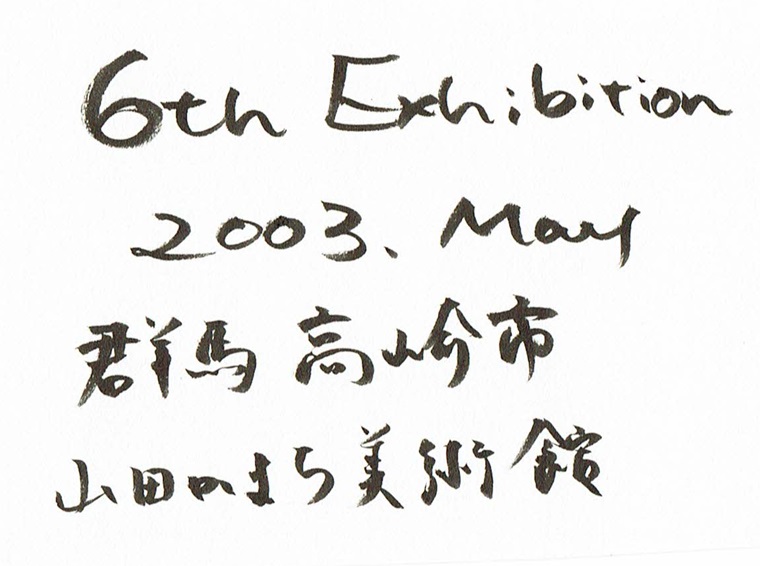 6th Exhibition
2003. May
群馬 高崎市
山田かまち美術館